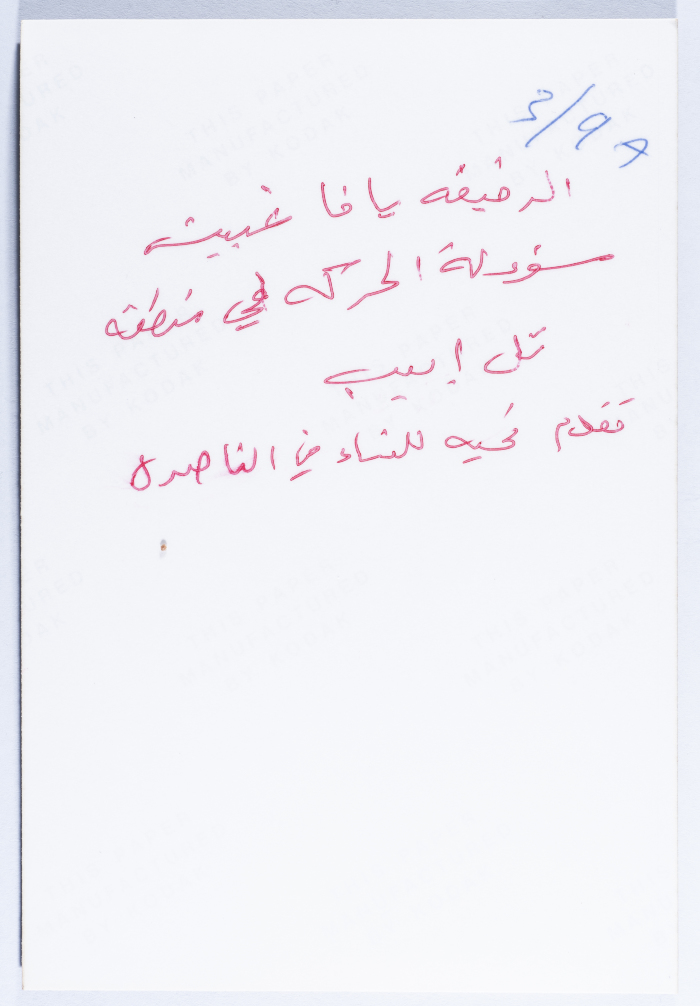 3/98
الرفيقه يافا غبيت
مسؤولة الحركه في منطقه
تل ابيب
تقدم تحيه للنساء في الناصرة
THIS PAPER
MANUFACTURED
BY KODAK